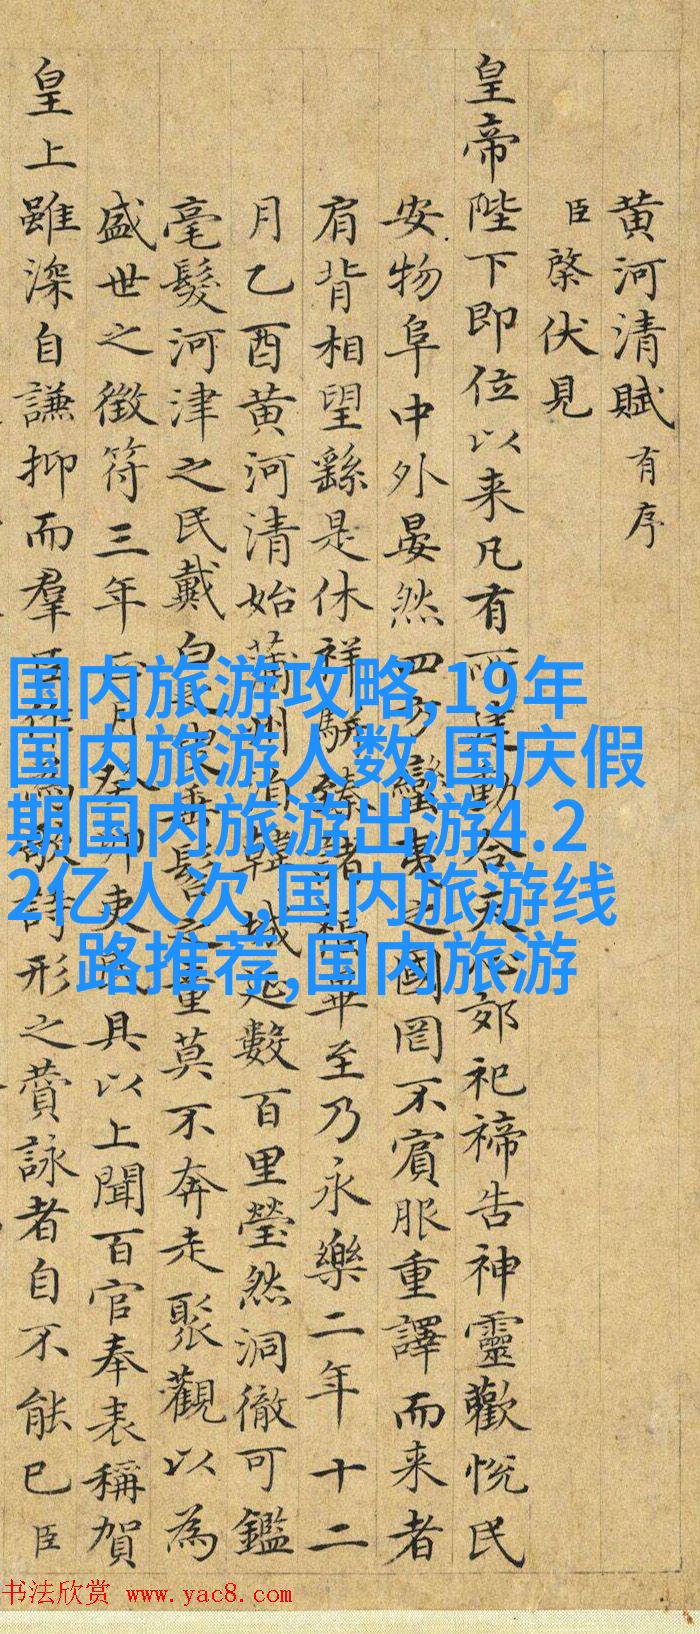 黄河清賦 有序
臣棨伏見
皇帝陛下即位以来凡有所動合天心郊祀禘告神靈歡悦民
安物阜中外晏然四方蠻夷之國罔不賓服重譯而来者
肩背相望繇是休祥駢臻諸福畢至乃永樂二年十二
月乙酉黄河清始蒲州韓城延數百里瑩然洞徹可鑑
毫髮河津之民戴白垂髫之童莫不奔走聚觀以為
盛世之徵符三年正月吏民具以上聞百官奉表稱賀
皇上雖深自謙抑而羣臣作為歌詩形之賛詠者自不能已臣
国内旅游攻略,19年
国内旅游人数,国庆假
期国内旅游出游4.2
2亿人次,国内旅游线
路推荐,国内旅游
书法欣赏 www.yac8.com